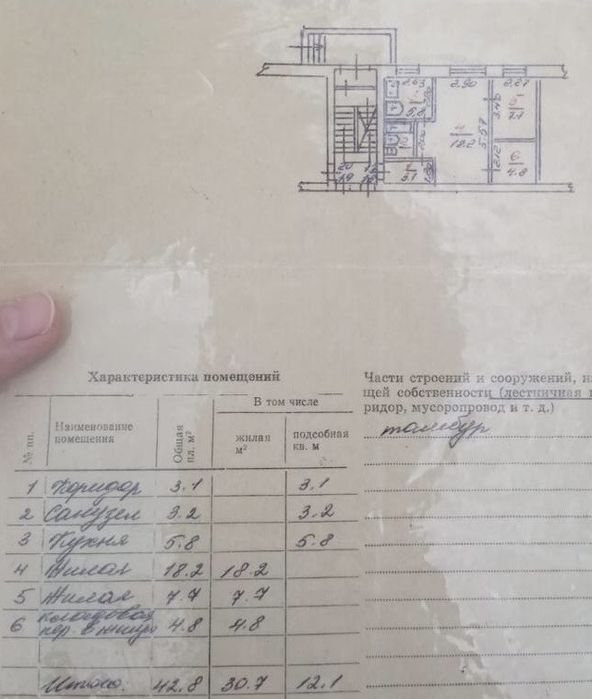 2.63
2.90
2.27
5.8
3.40
5
7.7
4
18.2
5.57
2
2.12
6
4.8
1
3.1
20
19
Характеристика помещений
Части строений и сооружений, на
щей собственности (лестничная
ридор, мусоропровод и т. д.)
тамбур
№ пп.
Наименование помещения
Общая пл. м²
В том числе
жилая м²
подсобная кв. м
1 Коридор 3.1 3.1
2 Санузел 3.2 3.2
3 Кухня 5.8 5.8
4 Жилая 18.2 18.2
5 Жилая 7.7 7.7
6 кладовая пер. в жилую 4.8 4.8
Итого. 42.8 30.7 12.1